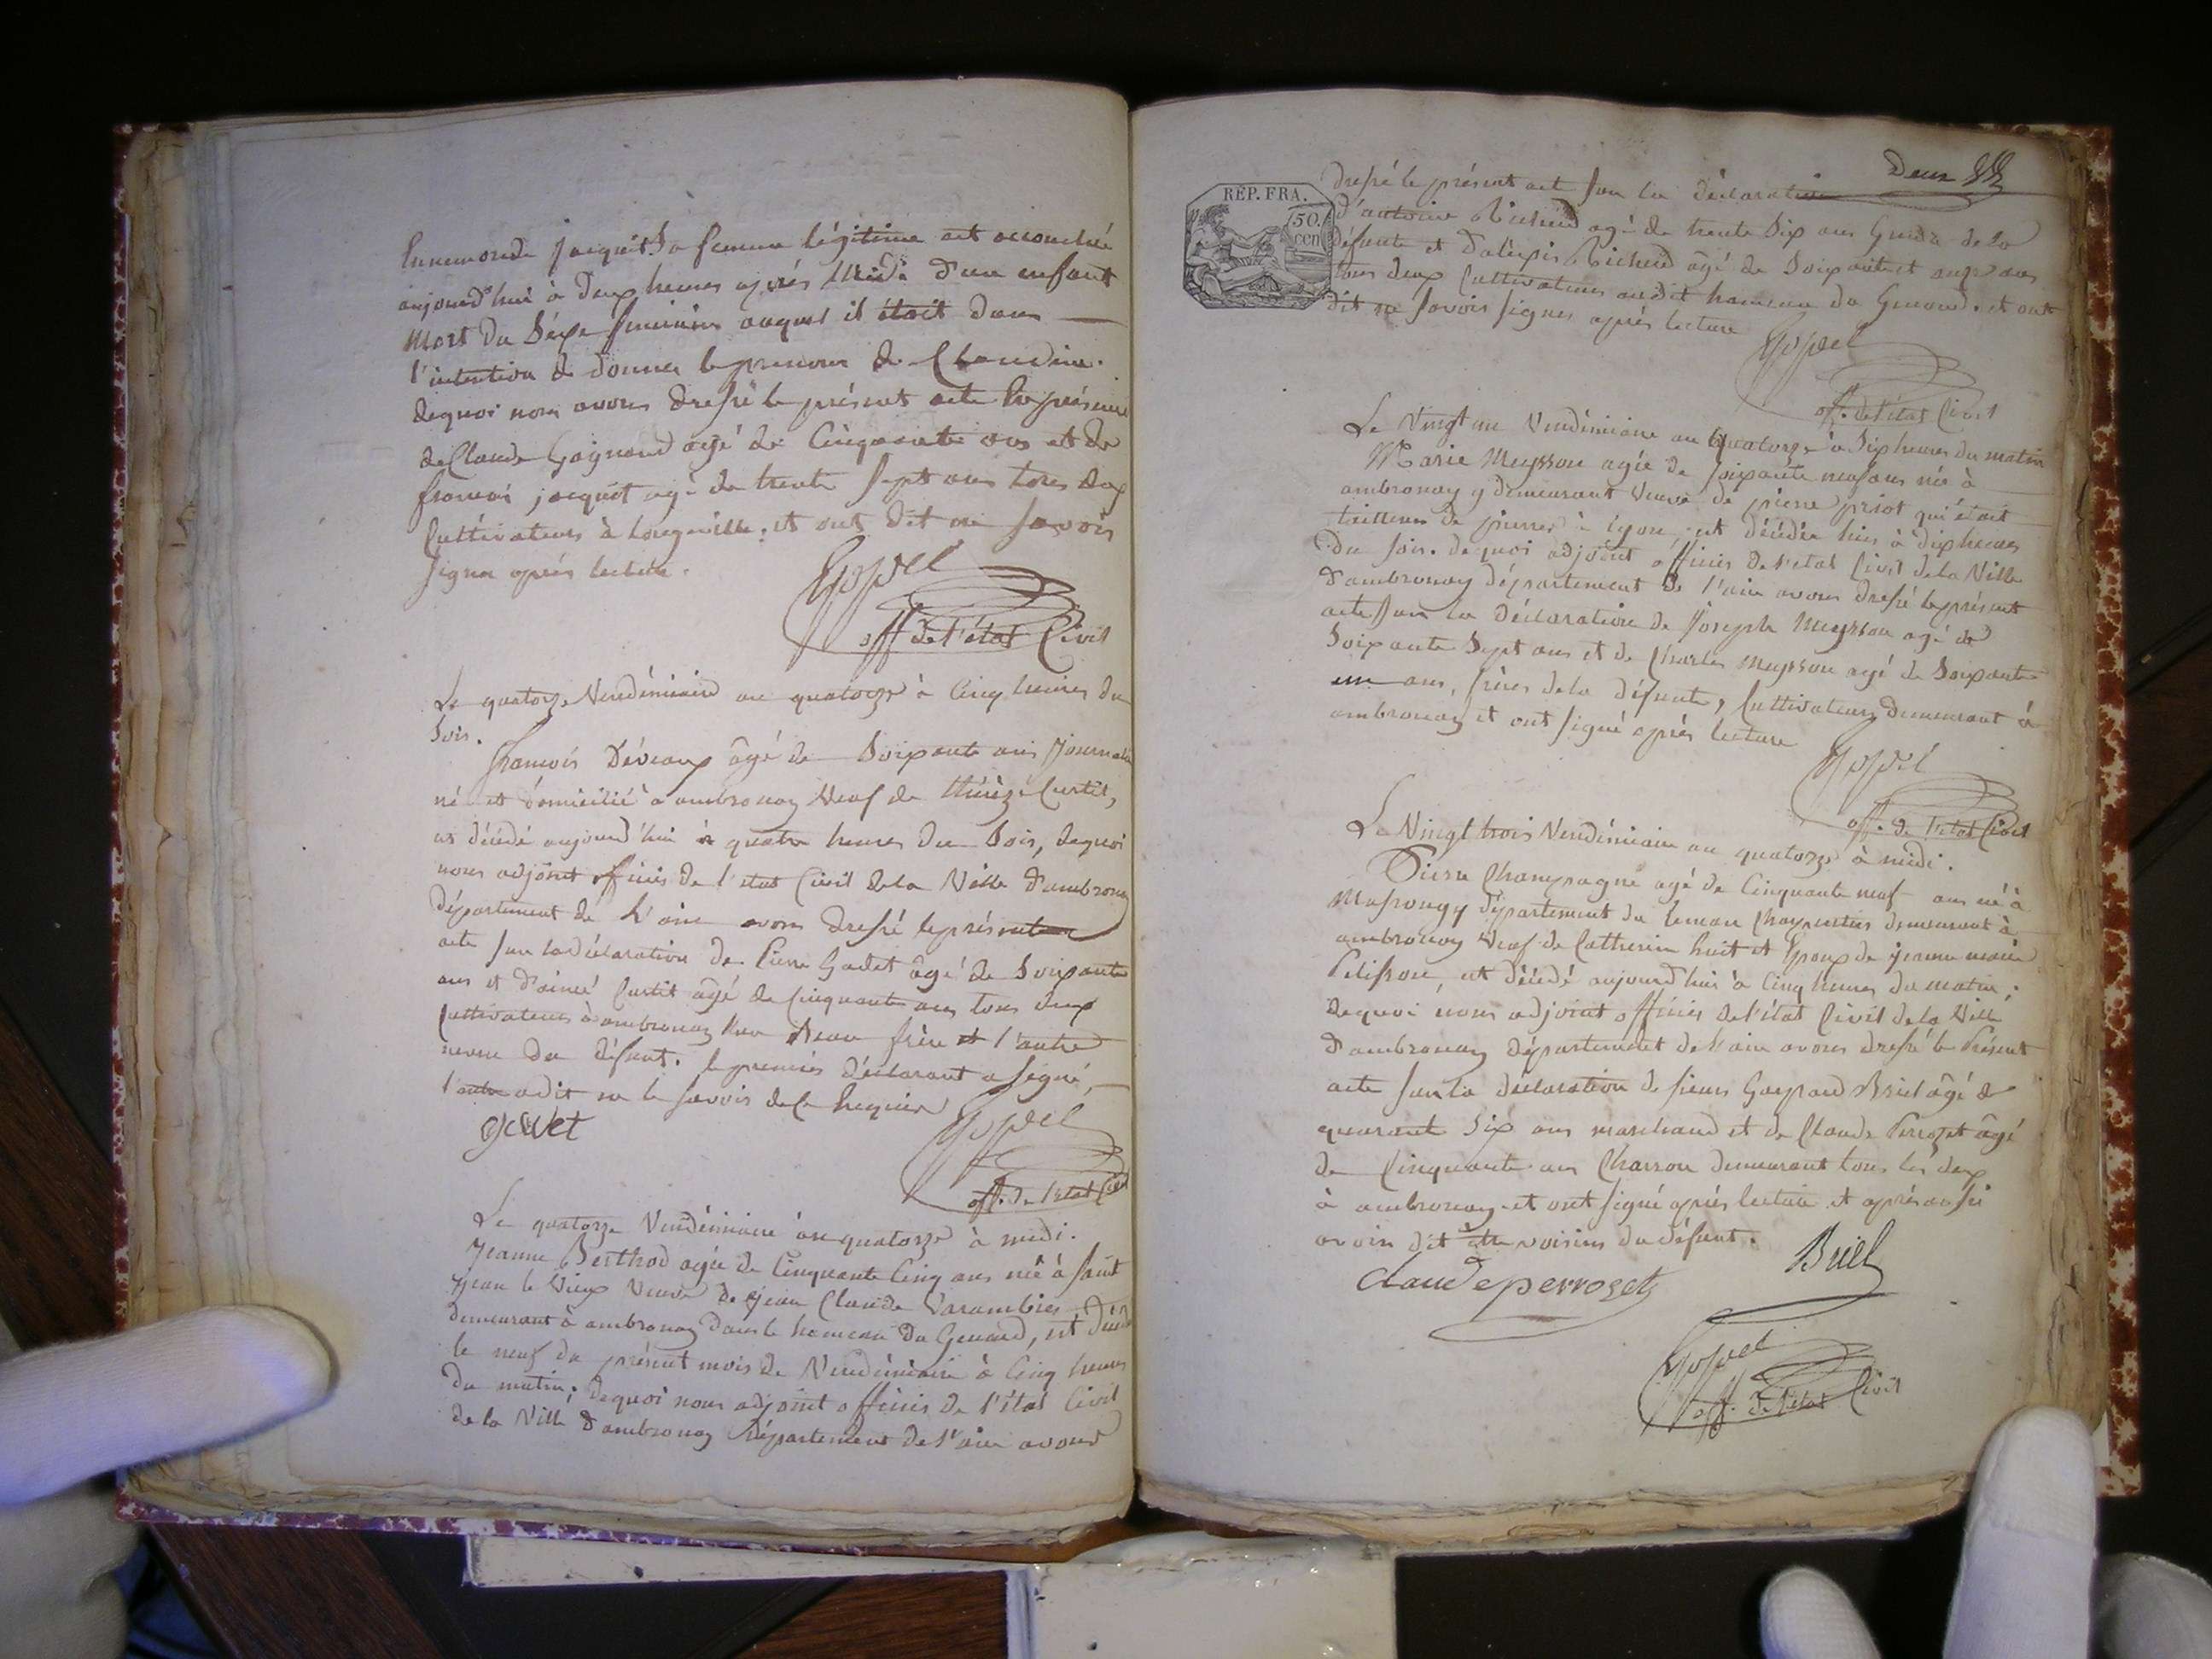 Ennemonde Jacquet Sa femme légitime est accouchée
aujourd'hui à deux heures après Midi d'un enfant
Mort du Séxe feminin auquel il étoit dans
l'intention de donner le prenom de Claudine.
dequoi nous avons dressé le présent acte En présence
de Claude Gagnand agé de Cinquante ans et de
françois jacquet agé de trente Sept ans tous deux
Cultivateurs à Longeville. et ont dit ne Savoir
Signer après lecture.
off de l'état Civil
Le quatorze Vendémiaire an quatorze à Cinq heures du
Soir.
François Déveaux âgé de Soixante ans Journalier
né et domicilié à ambronay Veuf de thérèze Curtil,
est décédé aujourd'hui à quatre heures du Soir, dequoi
nous adjoint officier de l'etat Civil de la Ville d'ambronay
département de l'ain avons dressé le présent
acte Sur la déclaration de Pierre Gadet âgé de Soixante
ans et d'aimé Curtil agé de Cinquante ans tous deux
Cultivateurs à ambronay beau frère et l'autre
neveu du défunt. le premier déclarant a Signé,
l'autre a dit ne le Savoir de ce Requier
off. de l'etat Civil
Le quatorze Vendémiaire an quatorze à midi.
Jeanne Berthod agée de Cinquante Cinq ans née à Saint
jean le Vieux Veuve de jean Claude Varambier
demeurant à ambronay dans le hameau du Genoud, est décédée
le neuf du présent mois de Vendémiaire à Cinq heures
du matin; dequoi nous adjoint officier de l'état Civil
de la Ville d'ambronay département de l'ain avons
Deux
RÉP. FRA.
50.
cen
dressé le présent act Sur la déclaration
d'antoine Richerd agé de trente Six ans Gendre de la
défunte et d'alexis Richerd âgé de Soixante et onze ans
tous deux Cultivateurs au dit hameau du Genoud. et ont
dit ne Savoir Signer après lecture
off. de l'état Civil
Le Vingt un Vendémiaire an Quatorze à Six heures du matin
Marie Meysson agée de Soixante neuf ans née à
ambronay y demeurant Veuve de pierre priot qui étoit
tailleur de pierres à Lyon, est décédée hier à dix heures
du Soir. dequoi adjoint officier de l'etat Civil de la Ville
d'ambronay département de l'ain avons dressé le présent
acte Sur la déclaration de Joseph Meysson agé de
Soixante Sept ans et de Charles Meysson agé de Soixante
un ans, frères de la défunte, Cultivateurs demeurant à
ambronay et ont signé après lecture
off. de l'etat Civil
Le Vingt trois Vendémiaire an quatorze à midi.
Pierre Champagne agé de Cinquante neuf ans né à
Massongy département du leman Charpentier demeurant à
ambronay Veuf de Catherine huit et Epoux de jeanne marie
Pelisson, est décédé aujourd'hui à Cinq heures du matin;
dequoi nous adjoint officier de l'état Civil de la Ville
d'ambronay département de l'ain avons dressé le Présent
acte Sur la déclaration de Sieurs Gaspard Briel âgé de
quarante Six ans marchand et de Claude Perrozet âgé
de Cinquante ans Charron demeurant tous les deux
à ambronay et ont signé après lecture et après aussi
avoir dit être voisins du défunt.
Briel
Claude perrozet
off. de l'etat Civil